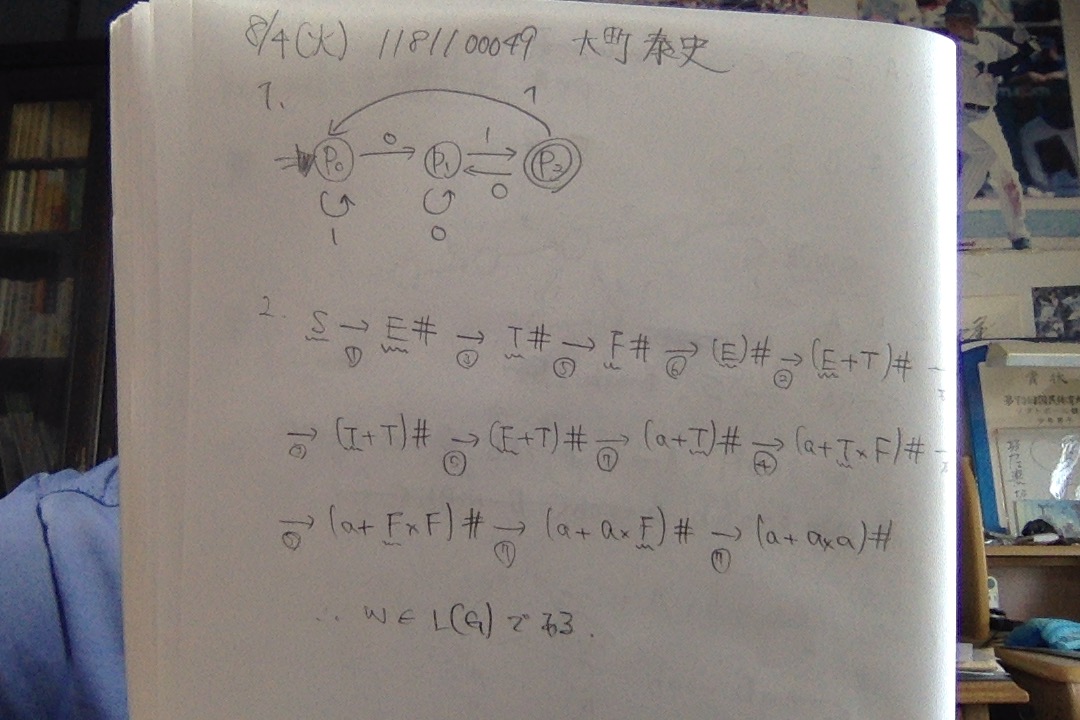 8/4(火) 1181100049 大町 泰史
1.
1
P₀ 0 P₁ 1 P₂
0
1 0
2. S → ① E# → ③ T# → ⑤ F# → ⑥ (E)# → ② (E+T)#
→ ③ (T+T)# → ⑤ (F+T)# → ⑦ (a+T)# → ④ (a+T×F)#
→ ⑤ (a+F×F)# → ⑦ (a+a×F)# → ⑦ (a+a×a)#
∴ W∈L(G)である.
賞状